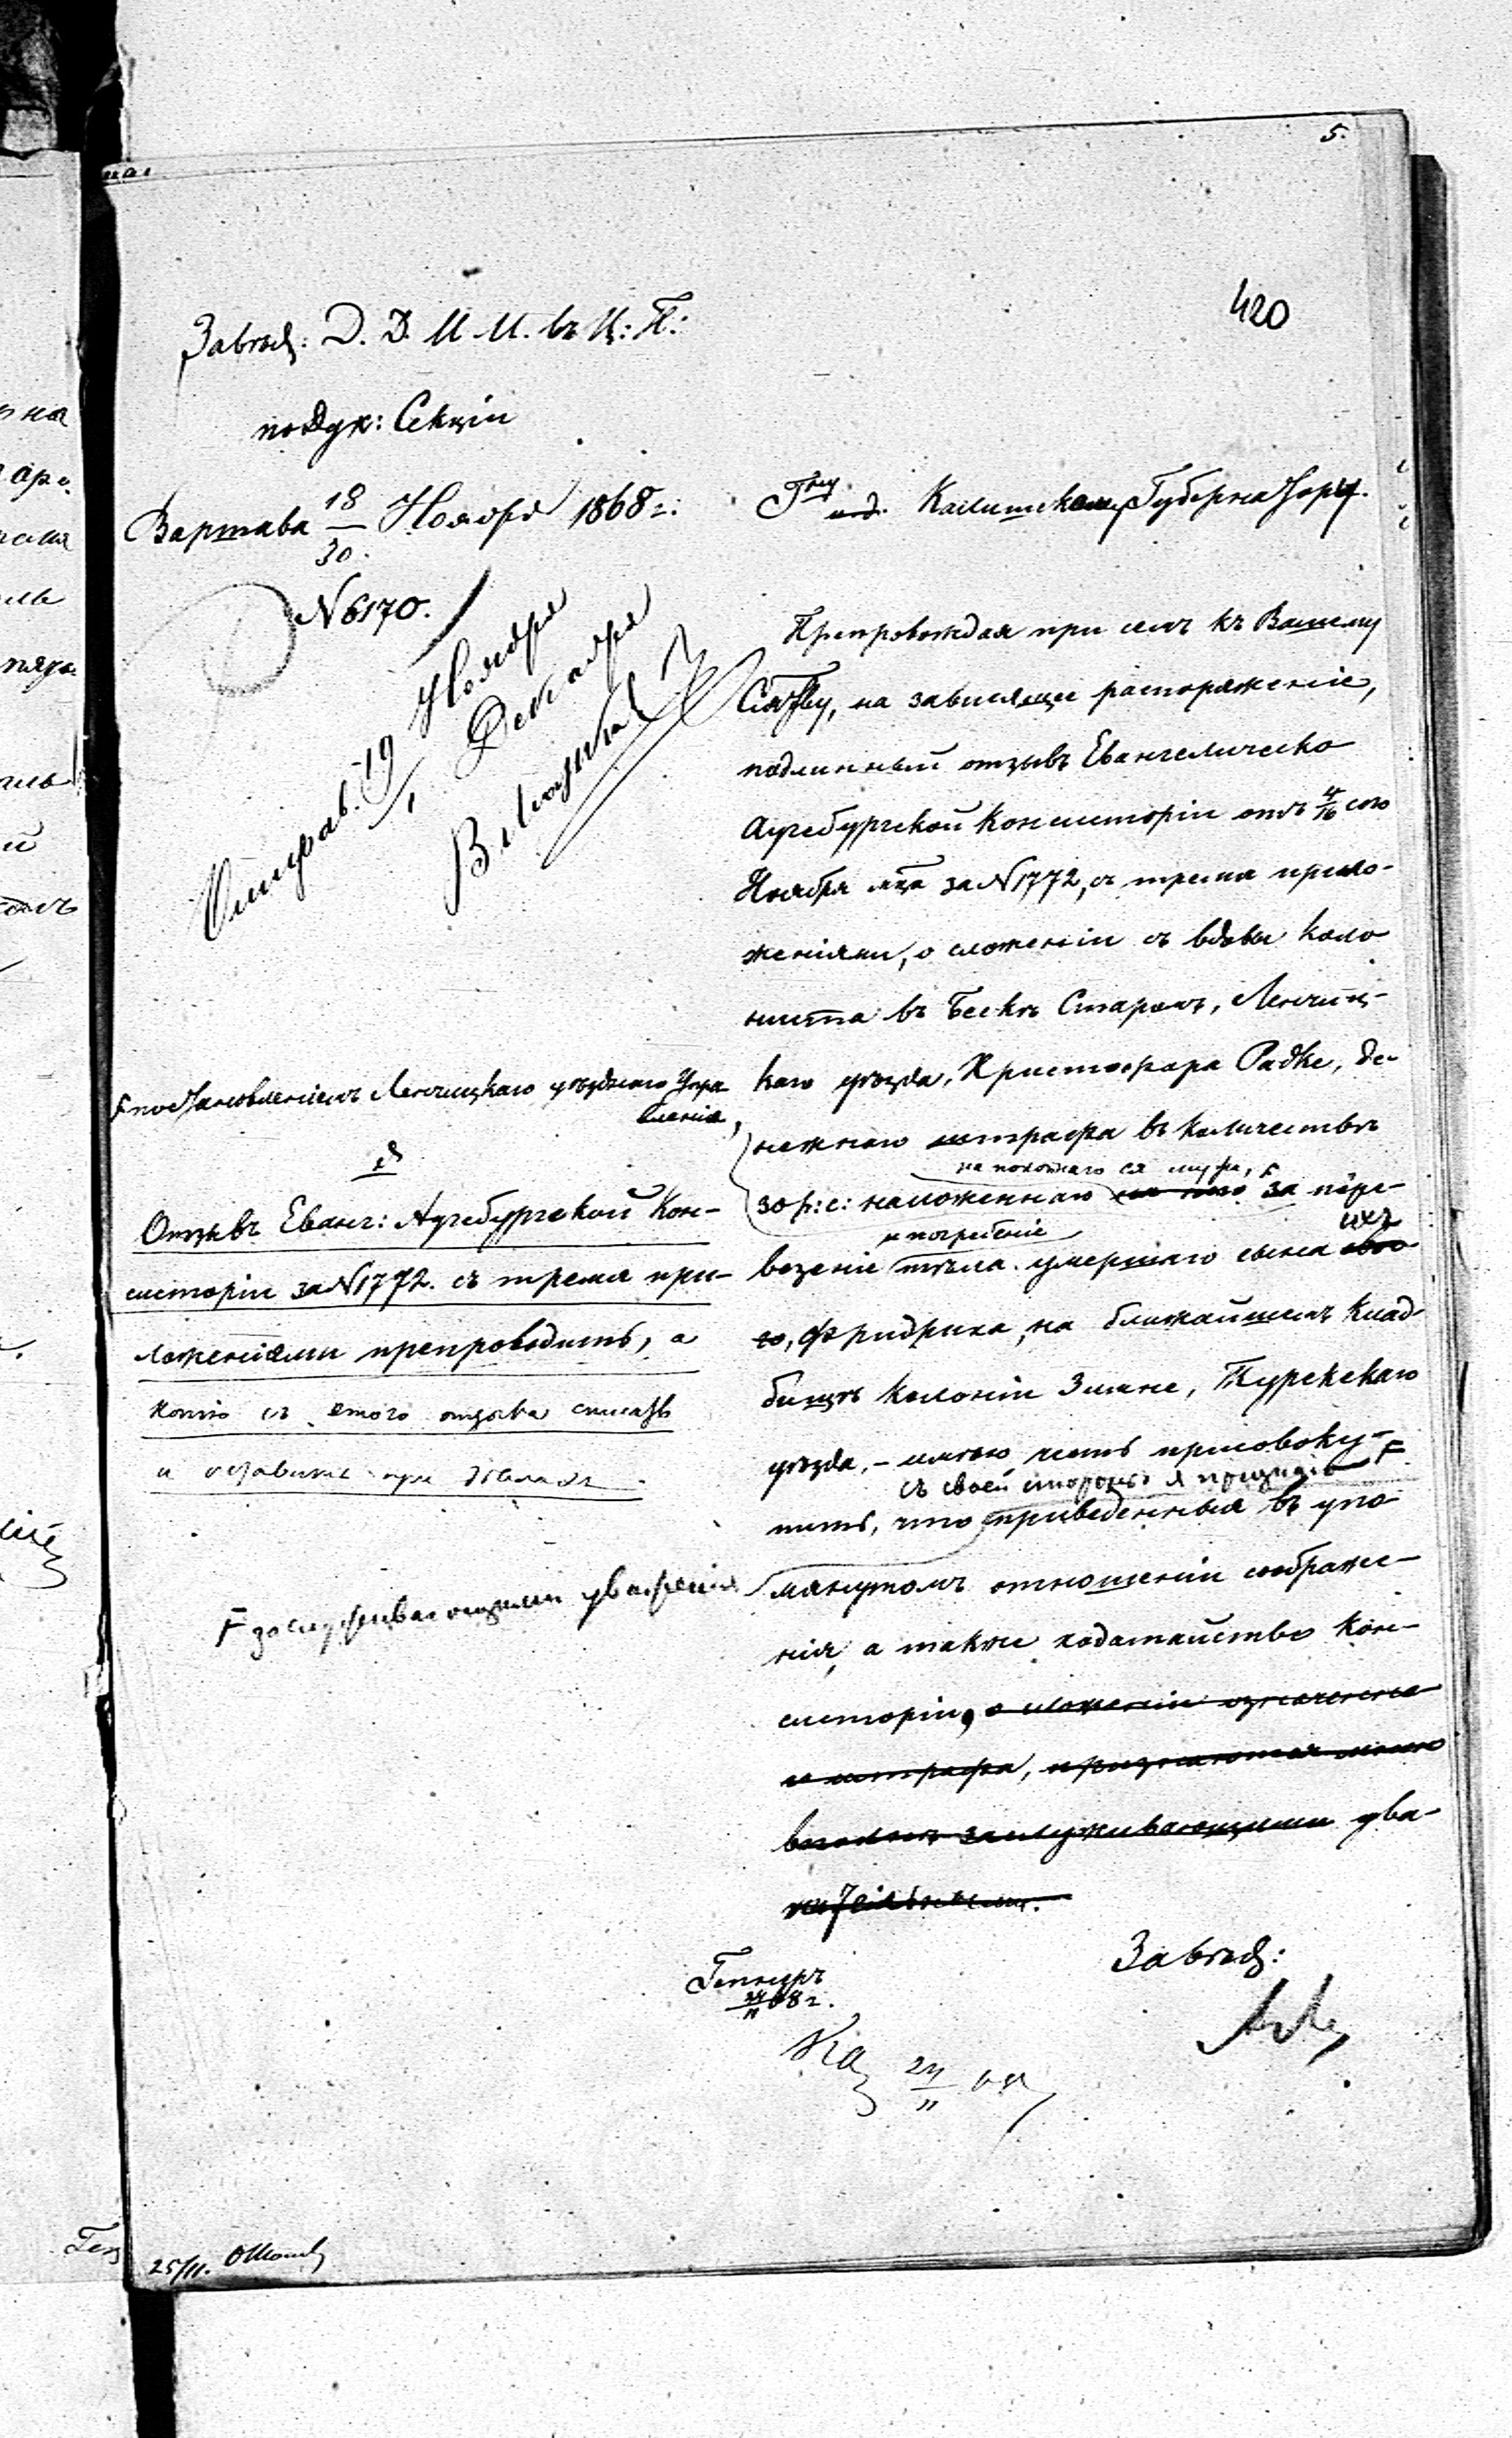 5.
420
Завѣд: Д. Д. И. И. въ Ц: П:
по Дух: Секціи
Варшава 18/30 Ноября 1868 г:
№ 6170.
Отправ. 19 Ноября
1 Декабря
Гну и. д. Калишскому Губернатору.
Препровождая при семъ къ Вашему
Сіятву, на зависящее распоряженіе,
подлинный отзывъ Евангелическо
Аугсбургской Консисторіи отъ 4/16 сего
Ноября мца за № 1772, съ тремя прило-
женіями, о сложеніи съ вдовы коло
ниста въ Бескѣ Старомъ, Ленчиц-
каго уѣзда, Христофора Радке, де-
нежнаго штрафа въ количествѣ
на покойнаго ея мужа, F
30 р: с: наложеннаго за пере-
и погребеніе
везеніе тѣла умершаго сына ихъ
сво-
го, Фридриха, на ближайшемъ клад-
бищѣ колоніи Зимне, Турекскаго
уѣзда, - имѣю честь присовоку-
съ своей стороны я признаю F
пить, что приведенныя въ упо
мянутомъ отношеніи соображе-
нія, а также ходатайство Кон-
систоріи, о сложеніи означенна
го штрафа, признаются мною
вполнѣ заслуживающими ува-
жительными.
F постановленіемъ Ленчицкаго уѣзднаго Упра
вленія,
Отзывъ Еванг: Аугсбургской Кон-
систоріи за № 1772. съ тремя при-
ложеніями препроводить, а
копію съ этого отзыва списать
и оставить при дѣлахъ.
F заслуживающими уваженія
Завѣд:
24/11 68 г.
24/11 68
25/11.